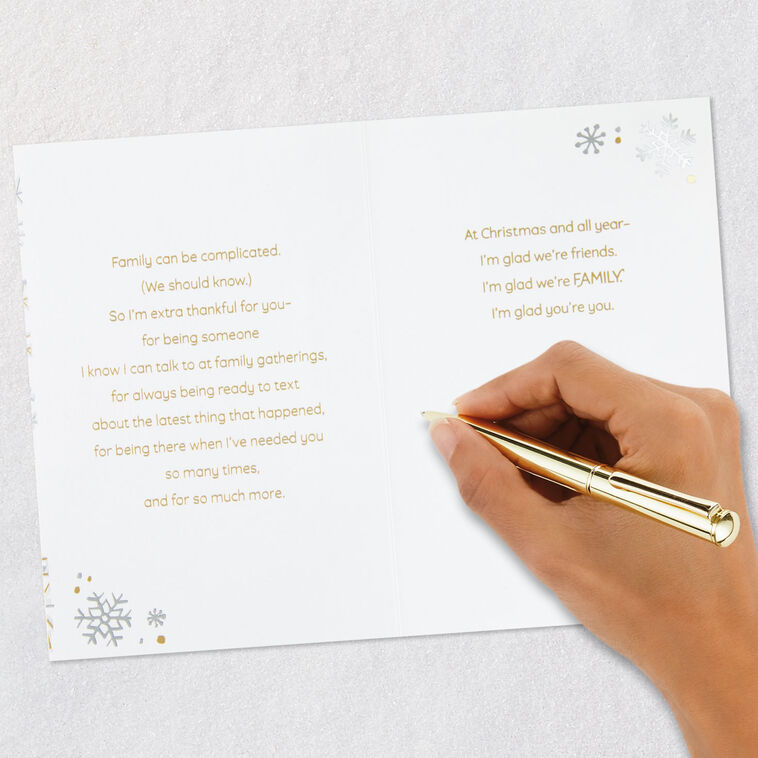 Family can be complicated.
(We should know.)
So I'm extra thankful for you–
for being someone
I know I can talk to at family gatherings,
for always being ready to text
about the latest thing that happened,
for being there when I've needed you
so many times,
and for so much more.
At Christmas and all year–
I'm glad we're friends.
I'm glad we're FAMILY.
I'm glad you're you.